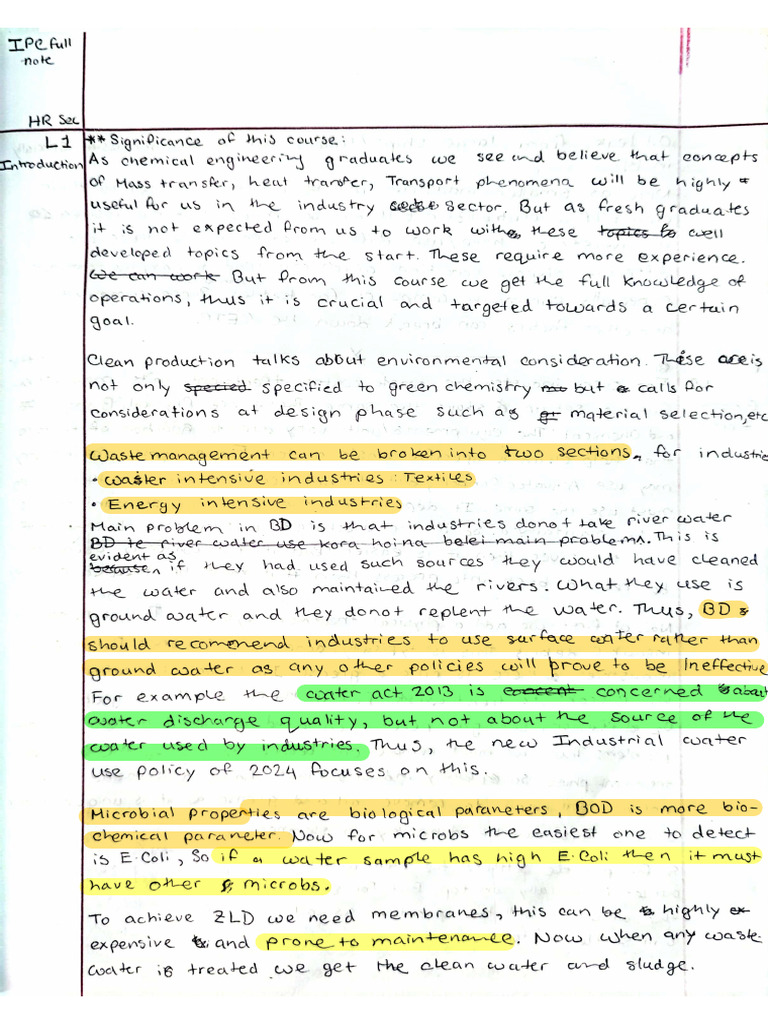 IPC full
note
HR Sec
L1
Introduction
** Significance of this course:
As chemical engineering graduates we see and believe that concepts
of Mass transfer, heat transfer, Transport phenomena will be highly
useful for us in the industry sector. But as fresh graduates
it is not expected from us to work with these topics to well
developed topics from the start. These require more experience.
We can work But from this course we get the full knowledge of
operations, thus it is crucial and targeted towards a certain
goal.
Clean production talks about environmental consideration. These is
not only specied specified to green chemistry but calls for
considerations at design phase such as material selection, etc
Waste management can be broken into two sections, for industries
• water intensive industries: Textiles
• Energy intensive industries
Main problem in BD is that industries donot take river water
BD te river water use kora hoina belei main problem. This is
evident as
because, if they had used such sources they would have cleaned
the water and also maintained the rivers. What they use is
ground water and they donot replent the water. Thus, BD
should recomenend industries to use surface water rather than
ground water as any other policies will prove to be Ineffective
For example the water act 2013 is concent concerned about
water discharge quality, but not about the source of the
water used by industries. Thus, the new Industrial water
use policy of 2024 focuses on this.
Microbial properties are biological parameters, BOD is more bio-
chemical parameter. Now for microbs the easiest one to detect
is E.Coli, So if a water sample has high E.Coli then it must
have other microbs.
To achieve ZLD we need membranes, this can be highly
expensive and prone to maintenance. Now when any waste-
water is treated we get the clean water and sludge.